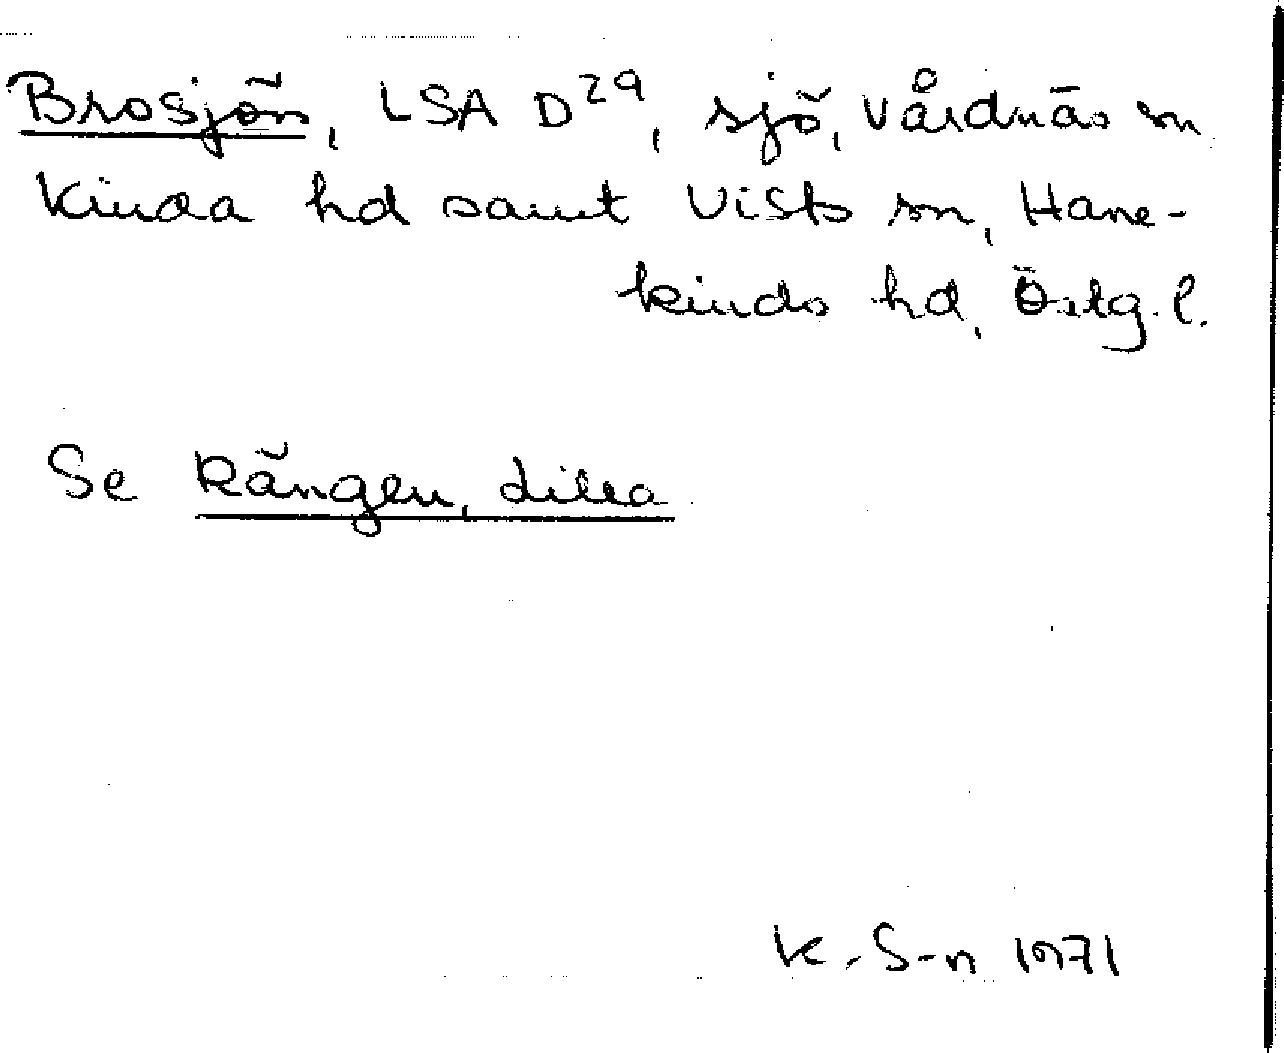 Brosjön, LSA D29, sjö, Vårdnäs sn
Kinda hd samt Vists sn, Hane-
kinds hd, Östg. l.
Se Rängen, Lilla
K. S-n 1971